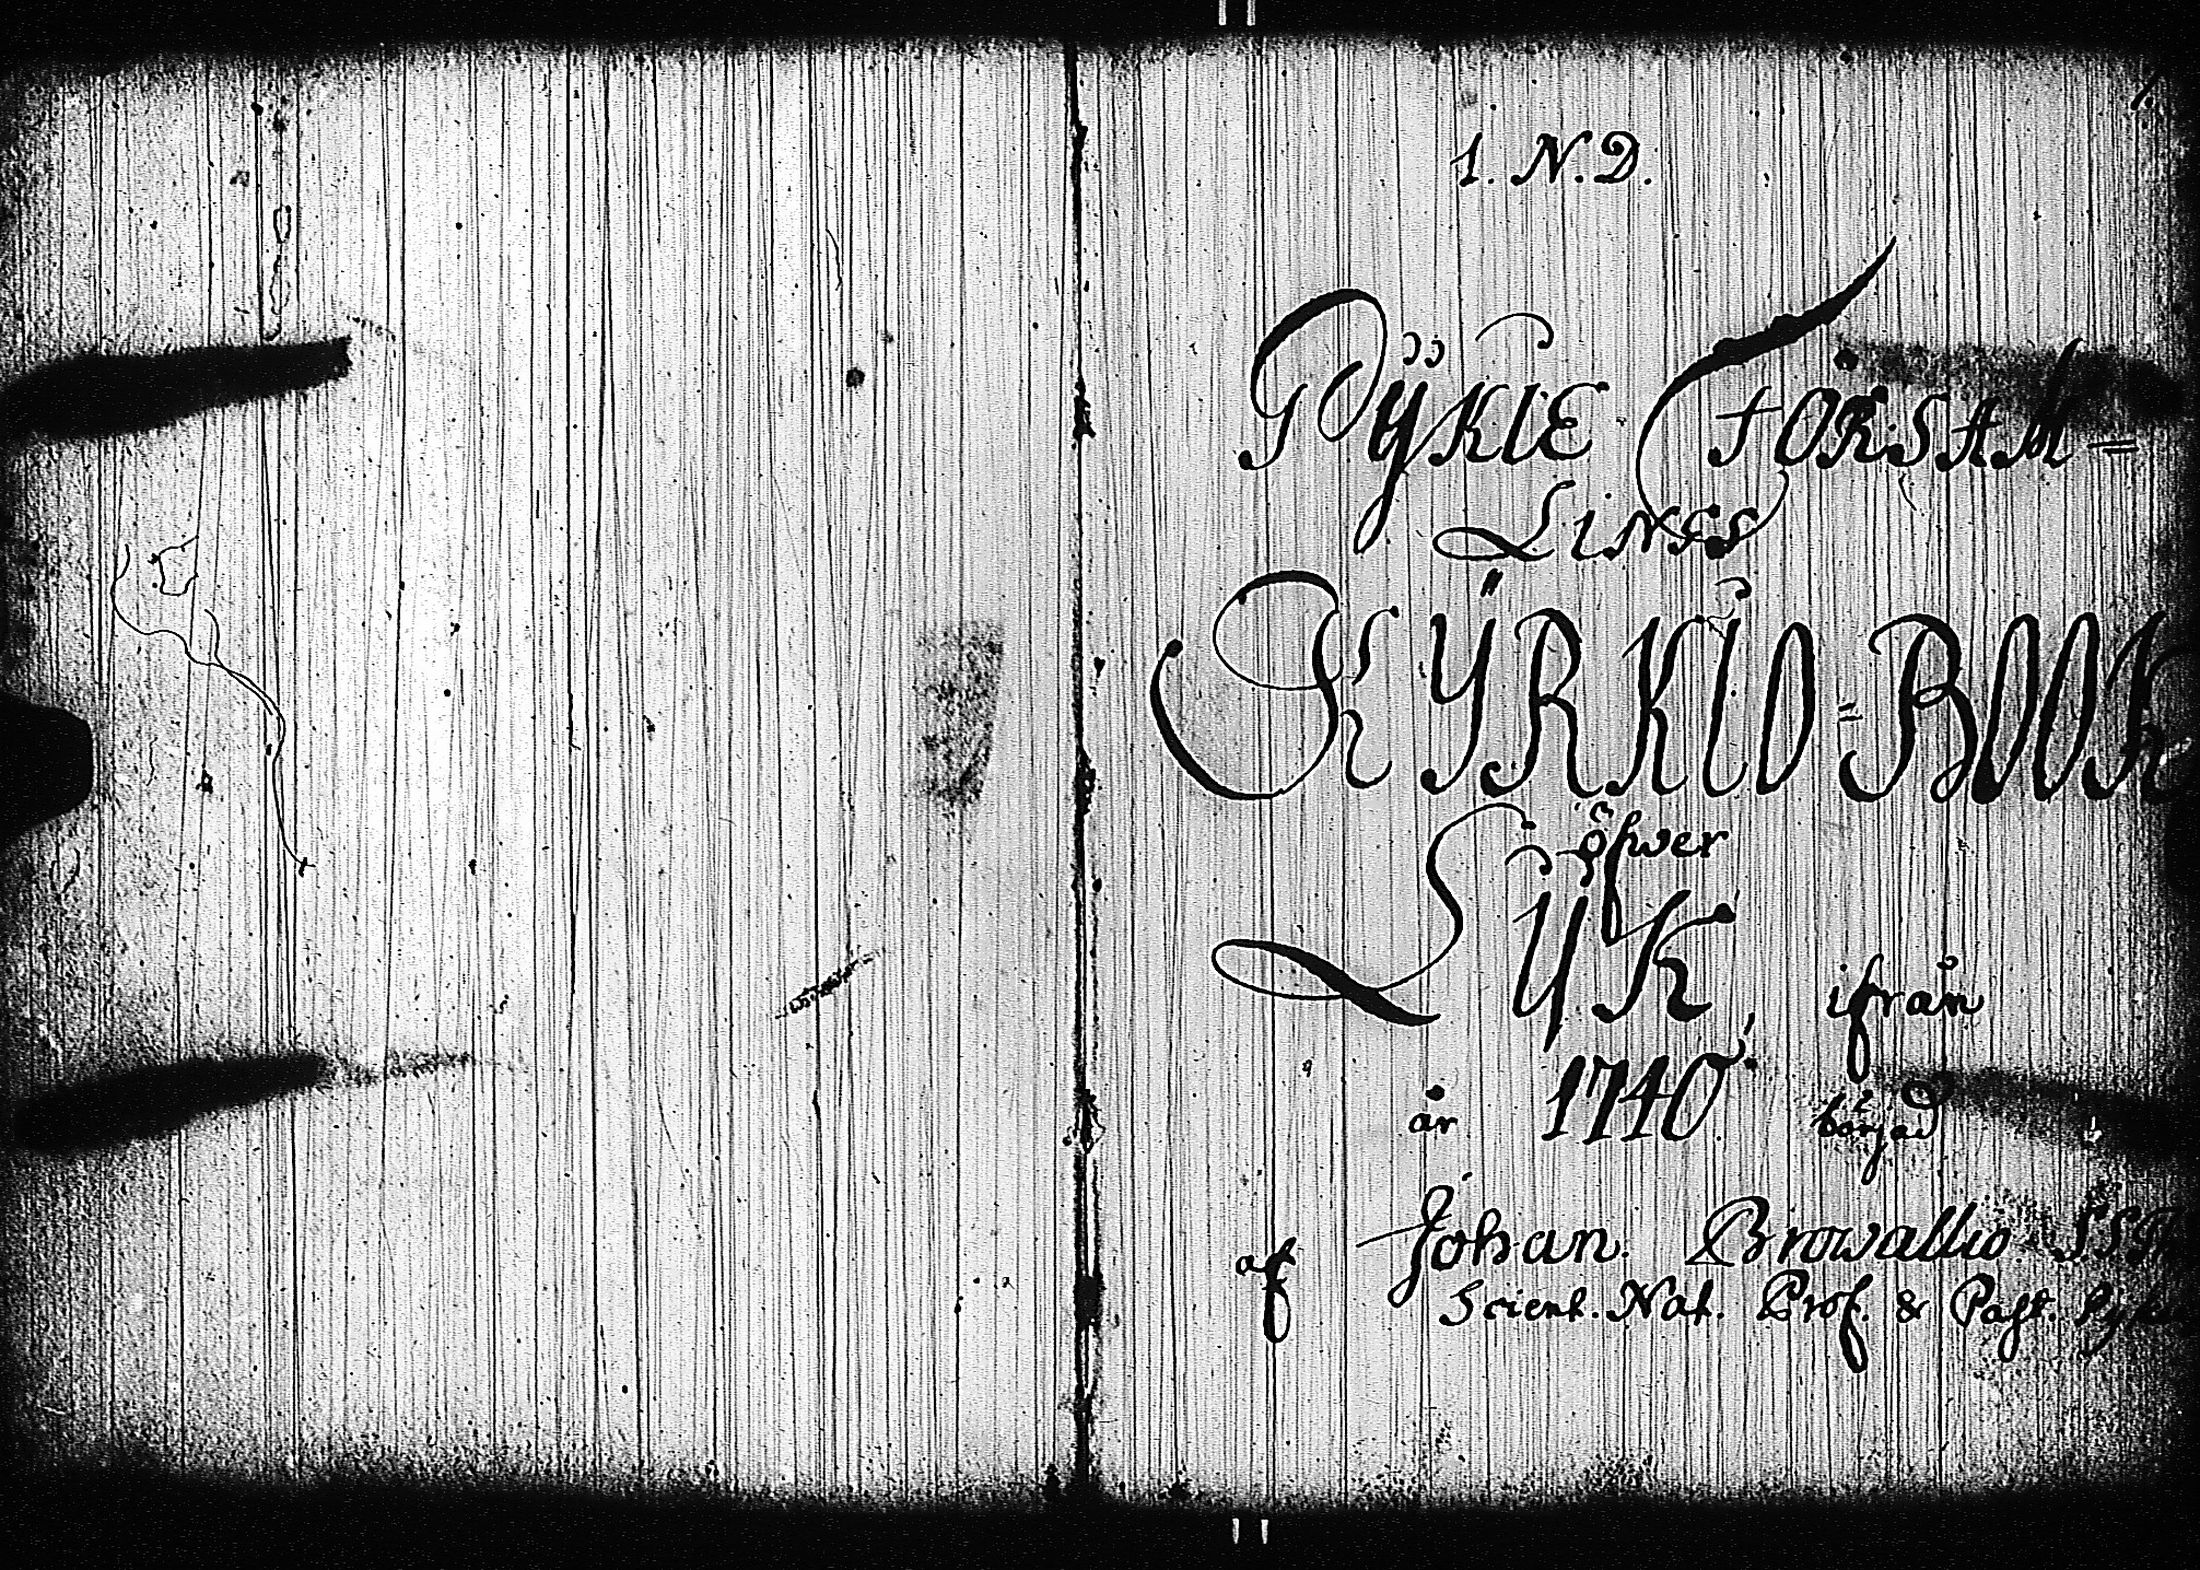 1.
I. N. D.
PŸKIE FÖRSAM=
LINGS
KŸRKIO=BOOK
öfwer
LŸK, ifrån
år 1740. börjad
af Johan. Browallio SSTh
Scient. Nat. Prof. & Past.